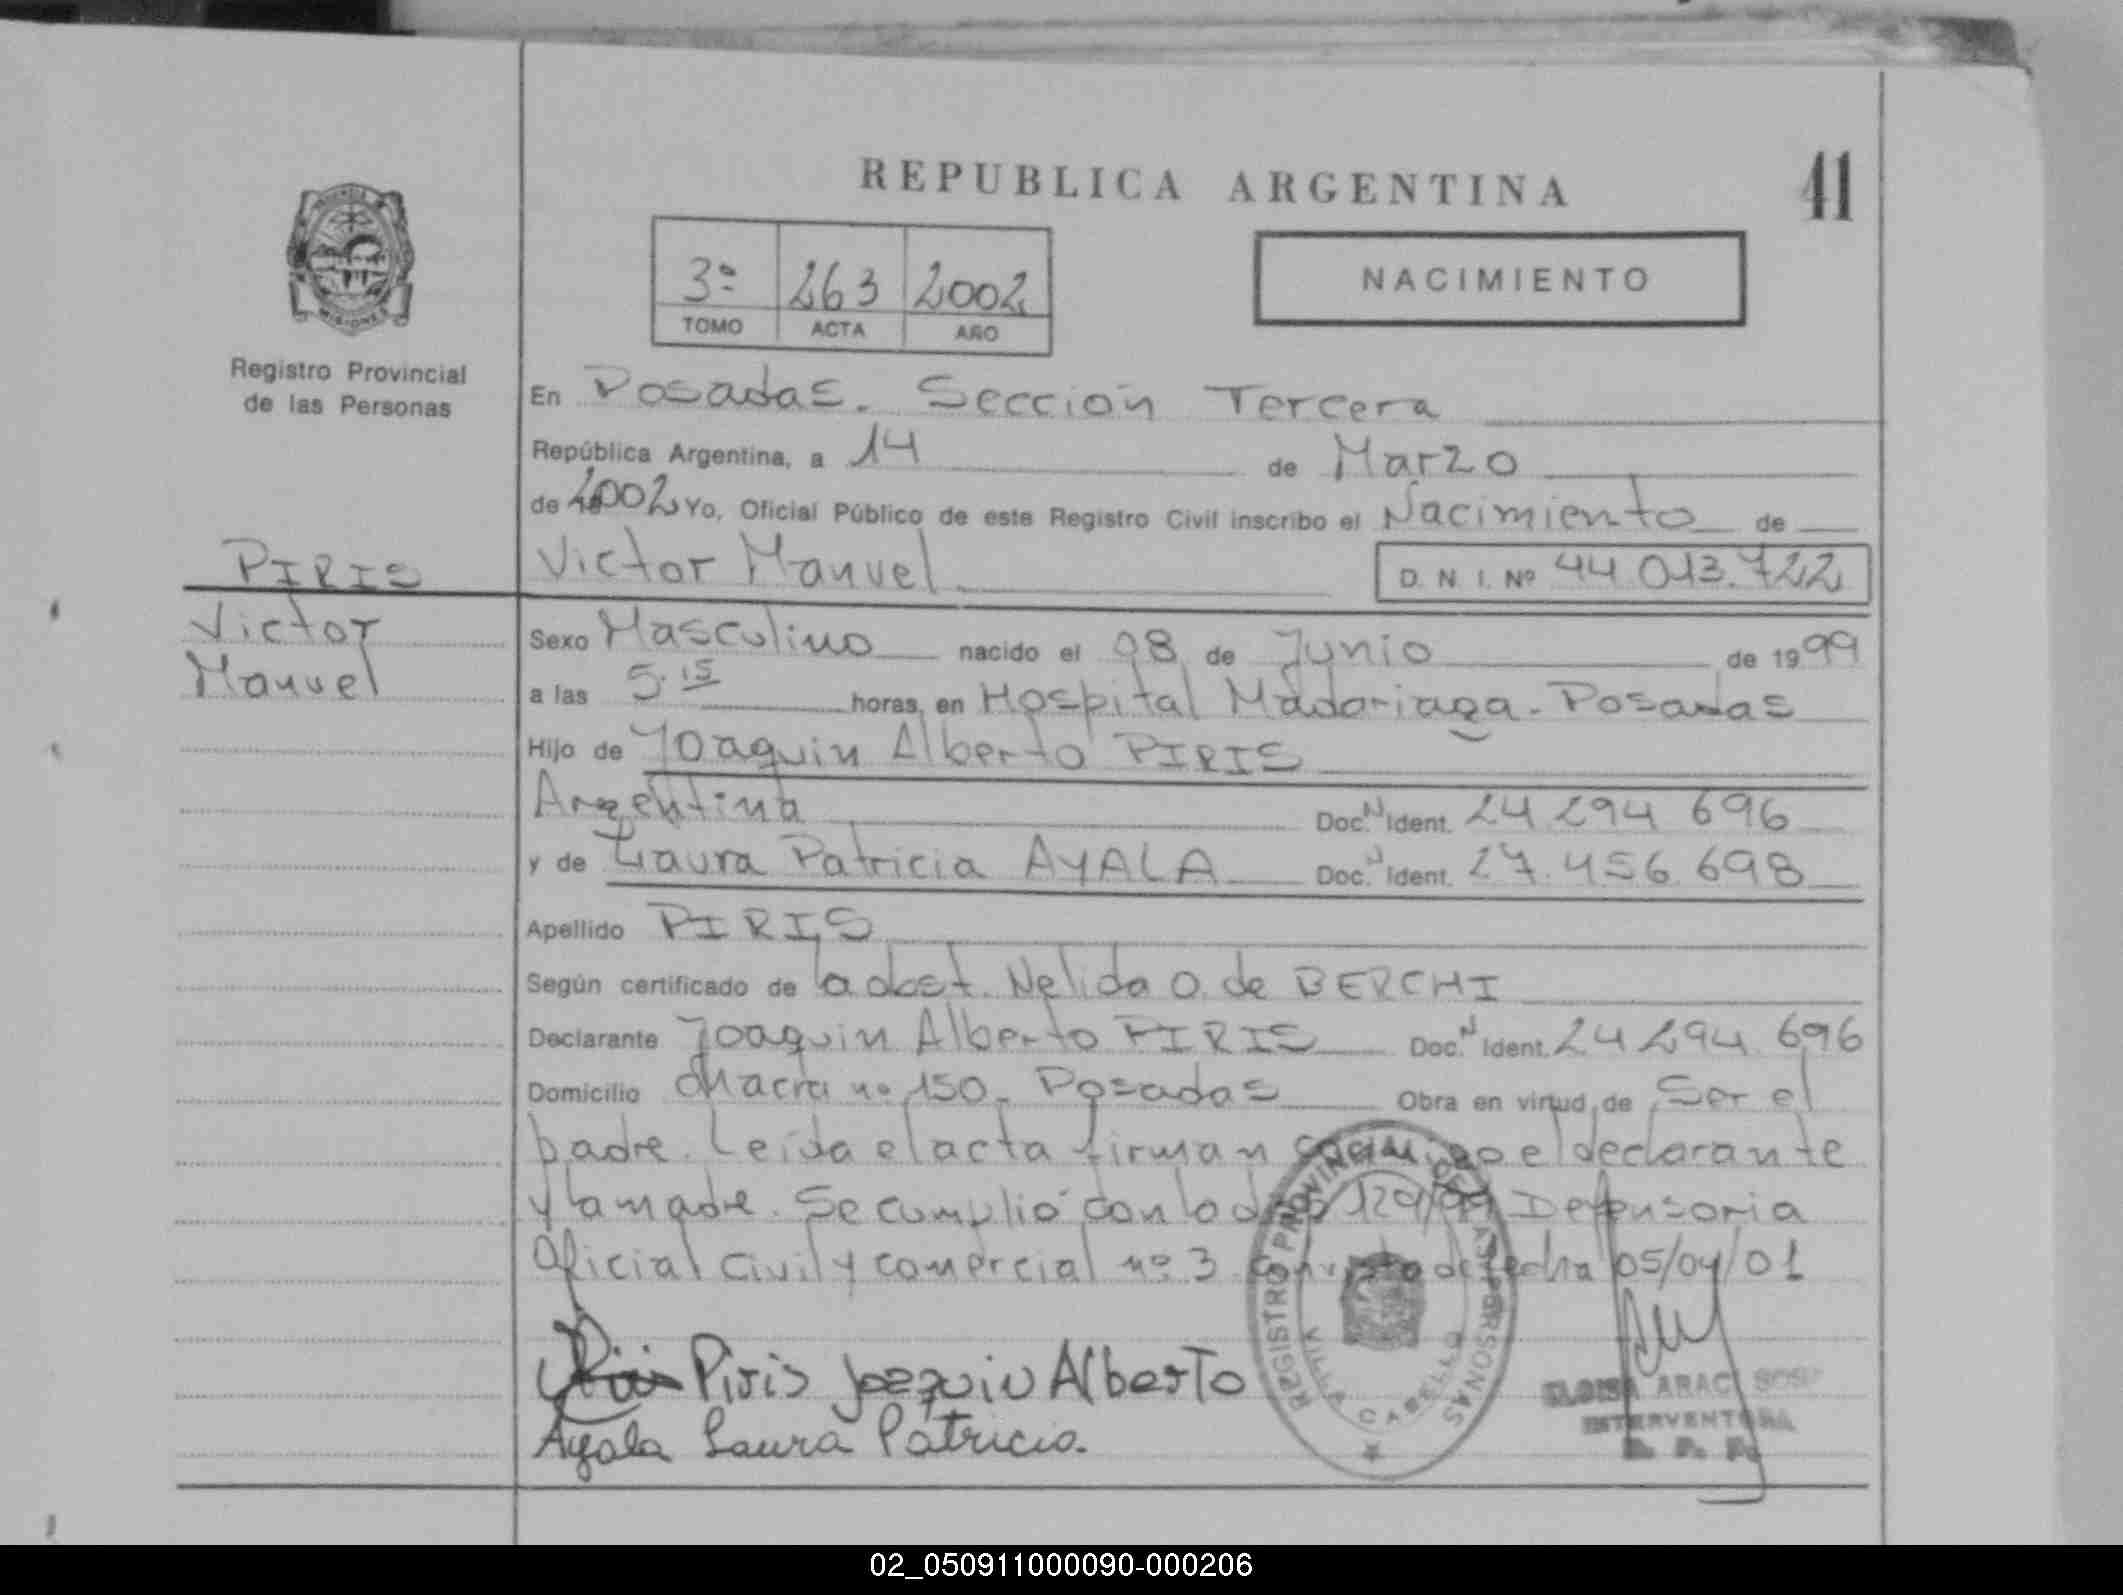 REPUBLICA ARGENTINA
41
3º 263 2002
TOMO ACTA AÑO
NACIMIENTO
MISIONES
Registro Provincial
de las Personas
En Posadas. Sección Tercera
República Argentina, a 14 de Marzo
de 2002 Yo, Oficial Público de este Registro Civil inscribo el Nacimiento de
PIRIS
Victor Manuel D. N. I. Nº 44.013.722
Victor
Manuel
Sexo Masculino nacido el 08 de Junio de 1999
a las 5.15 horas, en Hospital Madariaga - Posadas
Hijo de Joaquin Alberto PIRIS
Argentina Doc. N Ident. 24.294.696
y de Laura Patricia AYALA Doc. N Ident. 27.456.698
Apellido PIRIS
Según certificado de la obst. Nelida O. de BERCHI
Declarante Joaquin Alberto PIRIS Doc. N Ident. 24.294.696
Domicilio Chacra nº 150 - Posadas Obra en virtud de Ser el
padre. Leída el acta firman conmigo el declarante
y la madre. Se cumplió con la 129/99 Defensoria
Oficial Civil y comercial nº 3 de fecha 05/04/01
Piris Joaquin Alberto
Ayala Laura Patricia.
REGISTRO PROVINCIAL DE LAS PERSONAS
VILLA CABELLO
INTERVENTORA
02_050911000090-000206